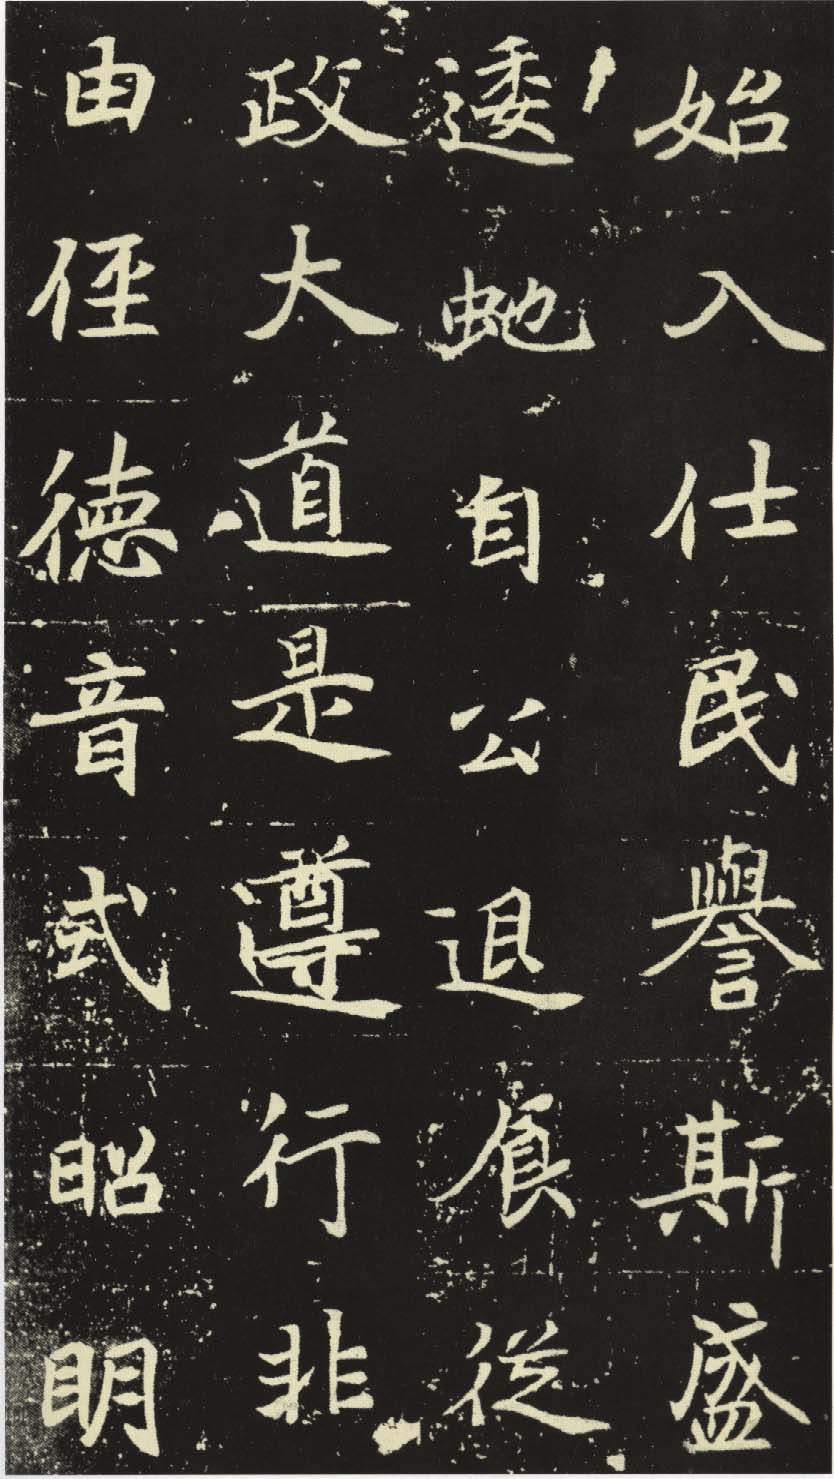 始入仕民譽斯盛
逶虵自公退食從
政大道是遵行非
由俓徳音式昭明